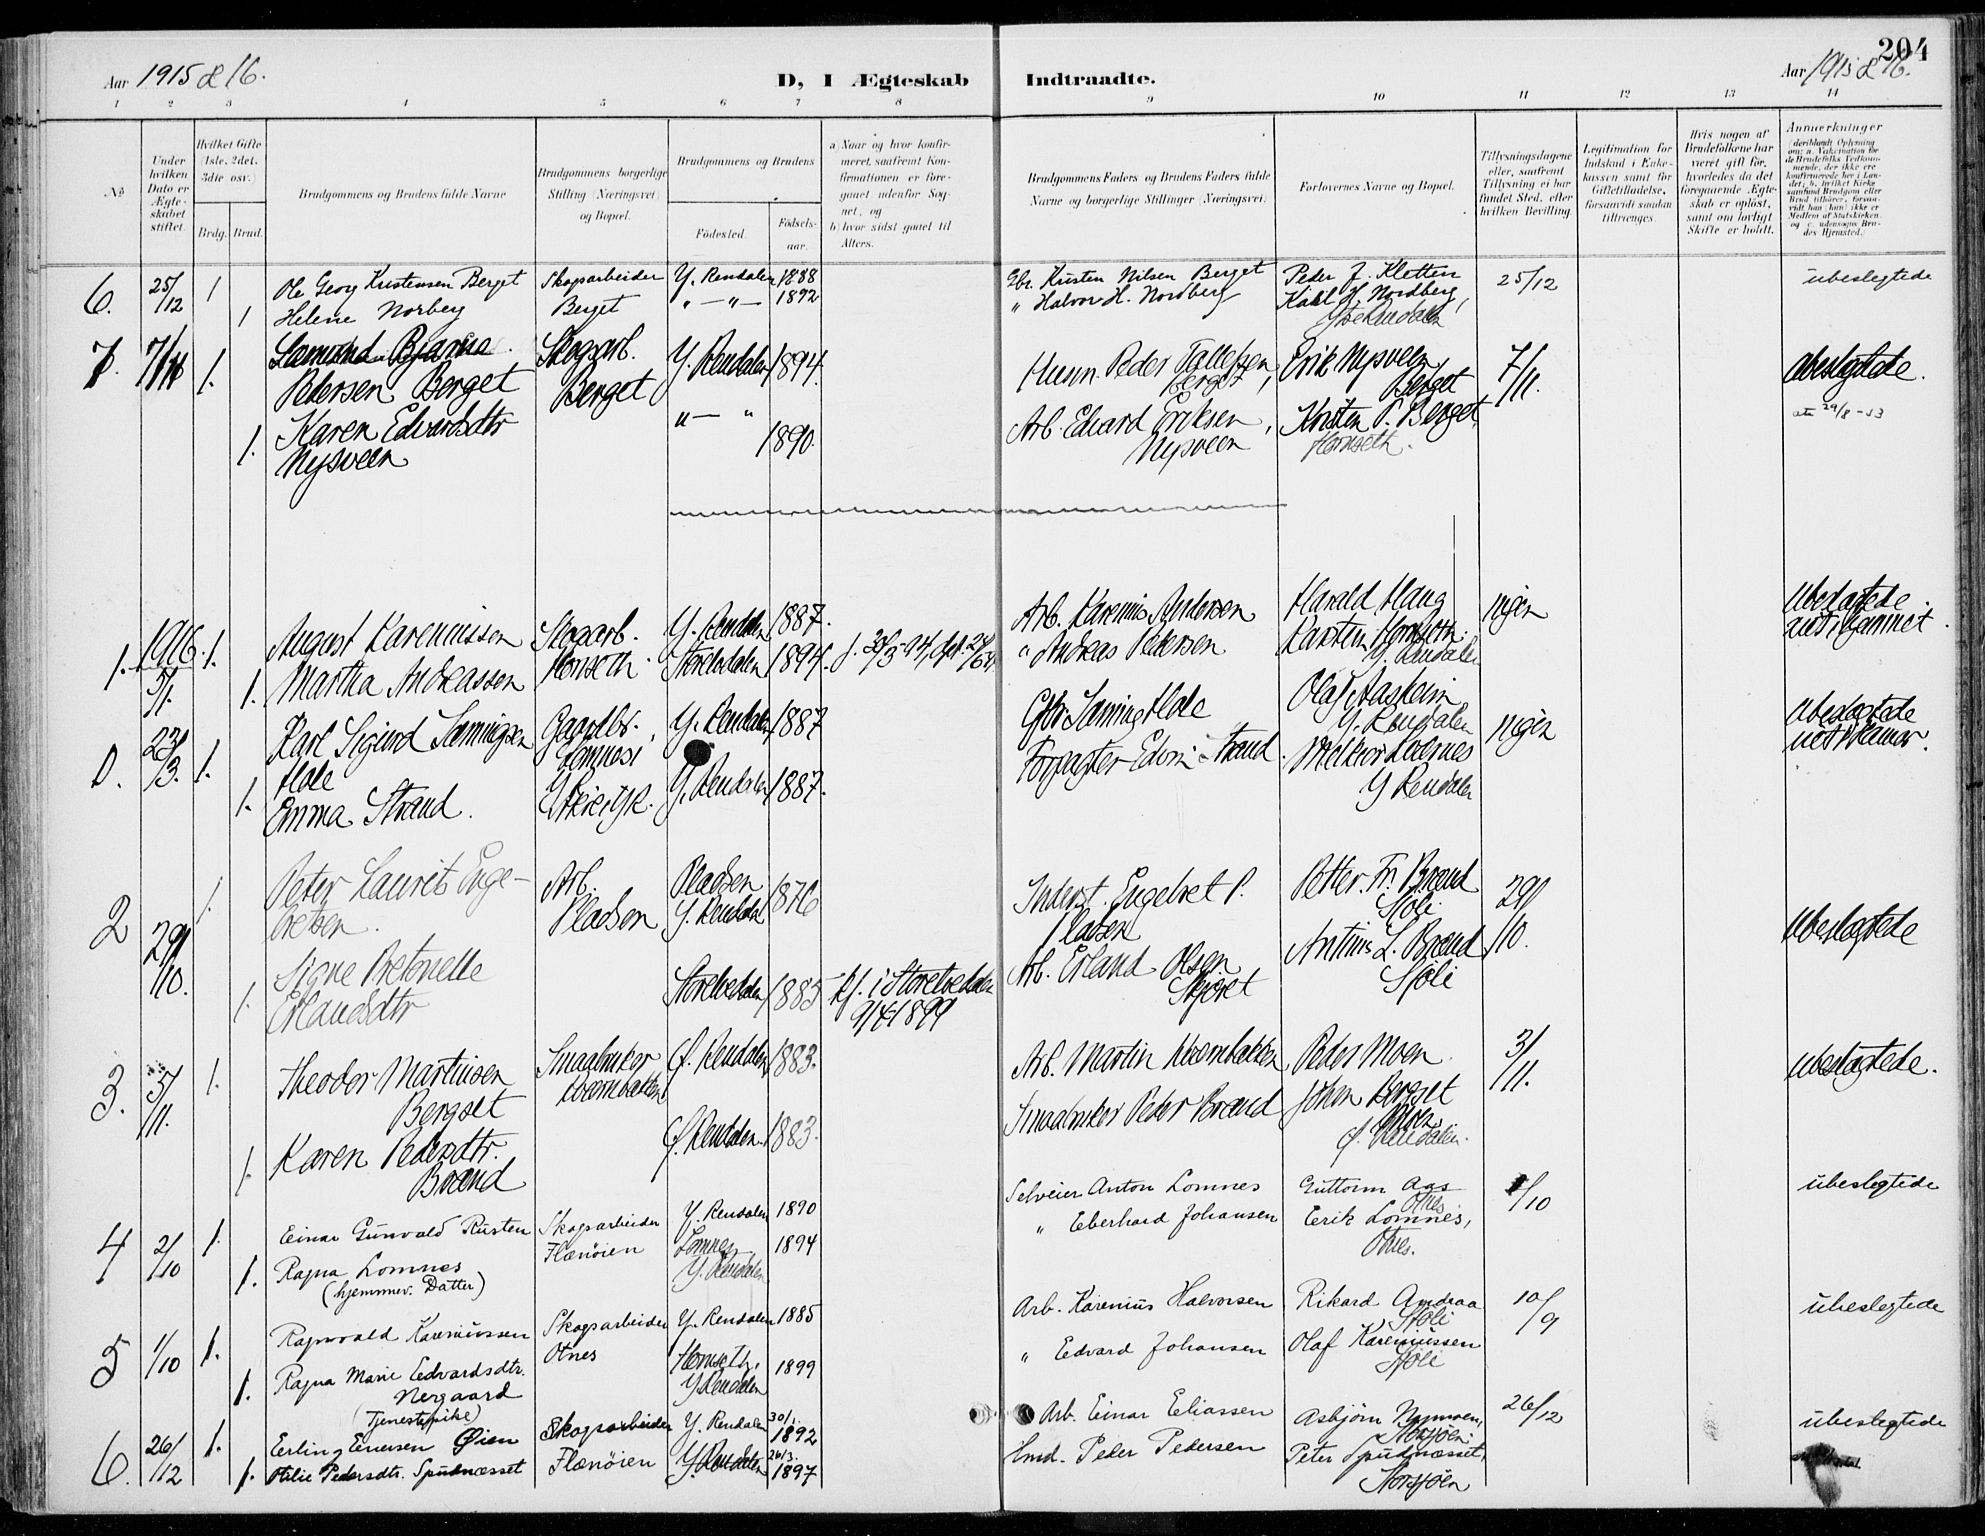 204
Aar 1915 & 16.
D, I Ægteskab
Indtraadte.
Aar 1915 & 16.
1 2 3 4 5 6 7 8 9 10 11 12 13 14
No
Under hvilken Dato er Ægteskabet stiftet.
Hvilket Gifte (1ste, 2det, 3die osv.)
Brdg. Brud.
Brudgommens og Brudens fulde Navne
Brudgommens borgerlige Stilling (Næringsvei) og Bopæl.
Brudgommens og Brudens
Fødested.
Fødsels-aar.
a) Naar og hvor konfirmeret, saafremt Konfirmationen er foregaaet udenfor Sognet, og
b) hvor sidst gaaet til Alters.
Brudgommens Faders og Brudens Faders fulde Navne og borgerlige Stillinger (Næringsvei)
Forlovernes Navne og Bopæl.
Tillysningsdagene eller, saafremt Tillysning ei har fundet Sted, efter hvilken Bevilling.
Legitimation for Indskud i Enkekassen samt for Giftetilladelse, forsaavidt saadan tiltrænges.
Hvis nogen af Brudefolkene har været gift før, hvorledes da det foregaaende Ægteskab er opløst, samt om lovligt Skifte er holdt.
Anmerkninger
6. 25/12 1 Ole Georg Kristensen Berget Skogsarbeider Y. Rendalen 1888 Gbr. Kristen Nilsen Berget Peder J. Kletten 25/12 ubeslegtede
1 Helene Norberg Berget " — " — 1892 " Halvor H. Nordberg Karl H. Nordberg,
Ytre Rendalen
7. 7/11 1. Bjarne Skogsarb. Y. Rendalen 1894. Peder Erik Nysveen 7/11. ubeslegtede.
Pedersen Berget Berget Berget, Berget
1. Karen Edvardsdtr " — " 1890. Arb. Edvard Eriksen, Kristen P. Berget
Nysveen Nysveen Hornseth.
1. 1916. 5/1. 1. August Kareniussen Skogarb. Y. Rendalen 1887. Arb. Karenius Andersen Harald Haug ingen ubeslegtede
1. Martha Andreassen Hornseth. Storelvedalen 1894. " Andreas Pedersen Karsten Hornseth.
Y. Rendalen
0. 23/3. 1. Karl Sigurd Sæmingsen Gaardbr. Y. Rendalen 1887 Gbr. Sæming Hole Olaf Aasheim ingen ubeslegtede
Hole Lomnes i Y. Rendalen
1. Emma Strand. Y. Rendalen 1887. Forpagter Strand. Lomnes
Y Rendalen
2 29/10. 1. Peter Laurits Enge- Arb. Pladsen 1876 Inderst. Engebret P. Petter Fr. Brænd 29/10. ubeslegtede
bretsen. Pladsen Y. Rendal Pladsen Sjøli
1. Signe Petonelle Storelvedalen 1885 kf. i Storelvedalen Arb. Erland Olsen Antinus L. Brænd
Erlandsdtr 9/4 1899 Sjøli
3. 5/11. 1. Theodor Martinsen Smaabruker Ø. Rendalen 1883. Arb. Martin Kværnbakken Peder Moen 3/11. ubeslegtede.
Bergset Kværnbakken
1. Karen Pedersdtr. Ø. Rendalen. 1883. Smaabruker Peder Brænd Johan Bergset
Brænd Ø. Rendalen.
4 2/10 1. Einar Gunvald Rusten Skogsarbeider Y. Rendalen 1890 Selveier Anton Lomnes Guttorm Aas 1/10 ubeslegtede
1. Ragna Lomnes Flænøien Lomnes 1894 " Eberhard Johansen Erik Lomnes,
(hjemmev. Datter) Y. Rendalen Otnes.
5 1/10 1. Ragnvald Kareniussen Skogsarbeider Y. Rendalen 1885 Arb. Karenius Halvorsen Rikard Andraa 10/9 ubeslegtede
Otnes Sjøli
1. Ragna Marie Edvardsdtr. Hornseth, 1899 " Edvard Johansen Olaf Kareniussen
Nergaard Y Rendalen Sjøli
(Tjenestepike)
6. 26/12 1. Erling Einersen Øien Skogsarbeider Y. Rendalen 30/1. 1892 Arb. Einar Eliassen Asbjørn Nymoen, 26/12 ubeslegtede
1. Otilie Pedersdtr. Spudnæsset Flænøien Y Rendalen 26/3. 1897 Hmd. Peder Pedersen Peter Spudnæsset,
Storsjøen